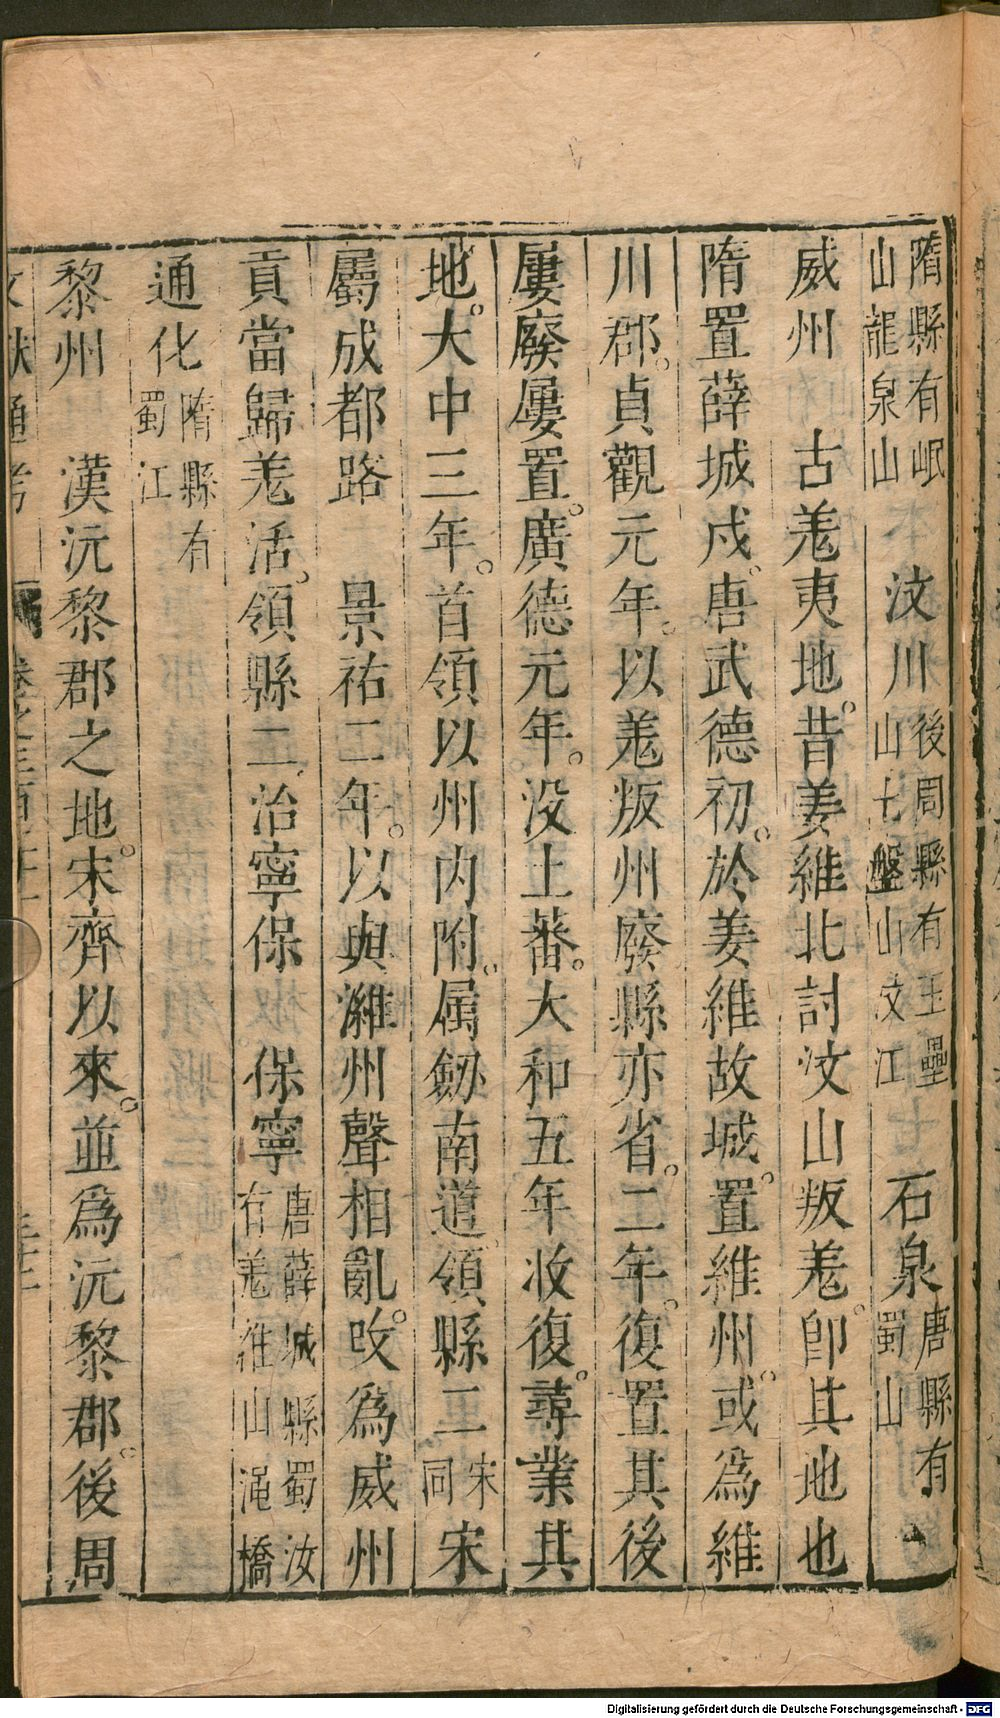 隋縣有岷山龍泉山　汶川後周縣有玉壘山七盤山汶江　石泉唐縣有蜀山
威州　古羗夷地。昔姜維北討汶山叛羗。卽其地也
隋置薛城戍。唐武德初。於姜維故城。置維州。或爲維
川郡。貞觀元年。以羗叛州廢縣亦省。二年。復置其後
屢廢屢置。廣德元年。没土蕃。大和五年收復。蕁業其
地。大中三年。首領以州内附。属劔南道。領縣二宋同宋
屬成都路　景祐二年。以與濰州聲相亂。改爲威州
貢當歸羗活。領縣二。治寧保　保寧唐薛城縣蜀汝有羗維山滝橋
通化隋縣有蜀江
黎州　漢沅黎郡之地。宋齊以來。並爲沅黎郡。後周
文獻通考　卷之三百二十一　三十二
Digitalisierung gefördert durch die Deutsche Forschungsgemeinschaft - DFG